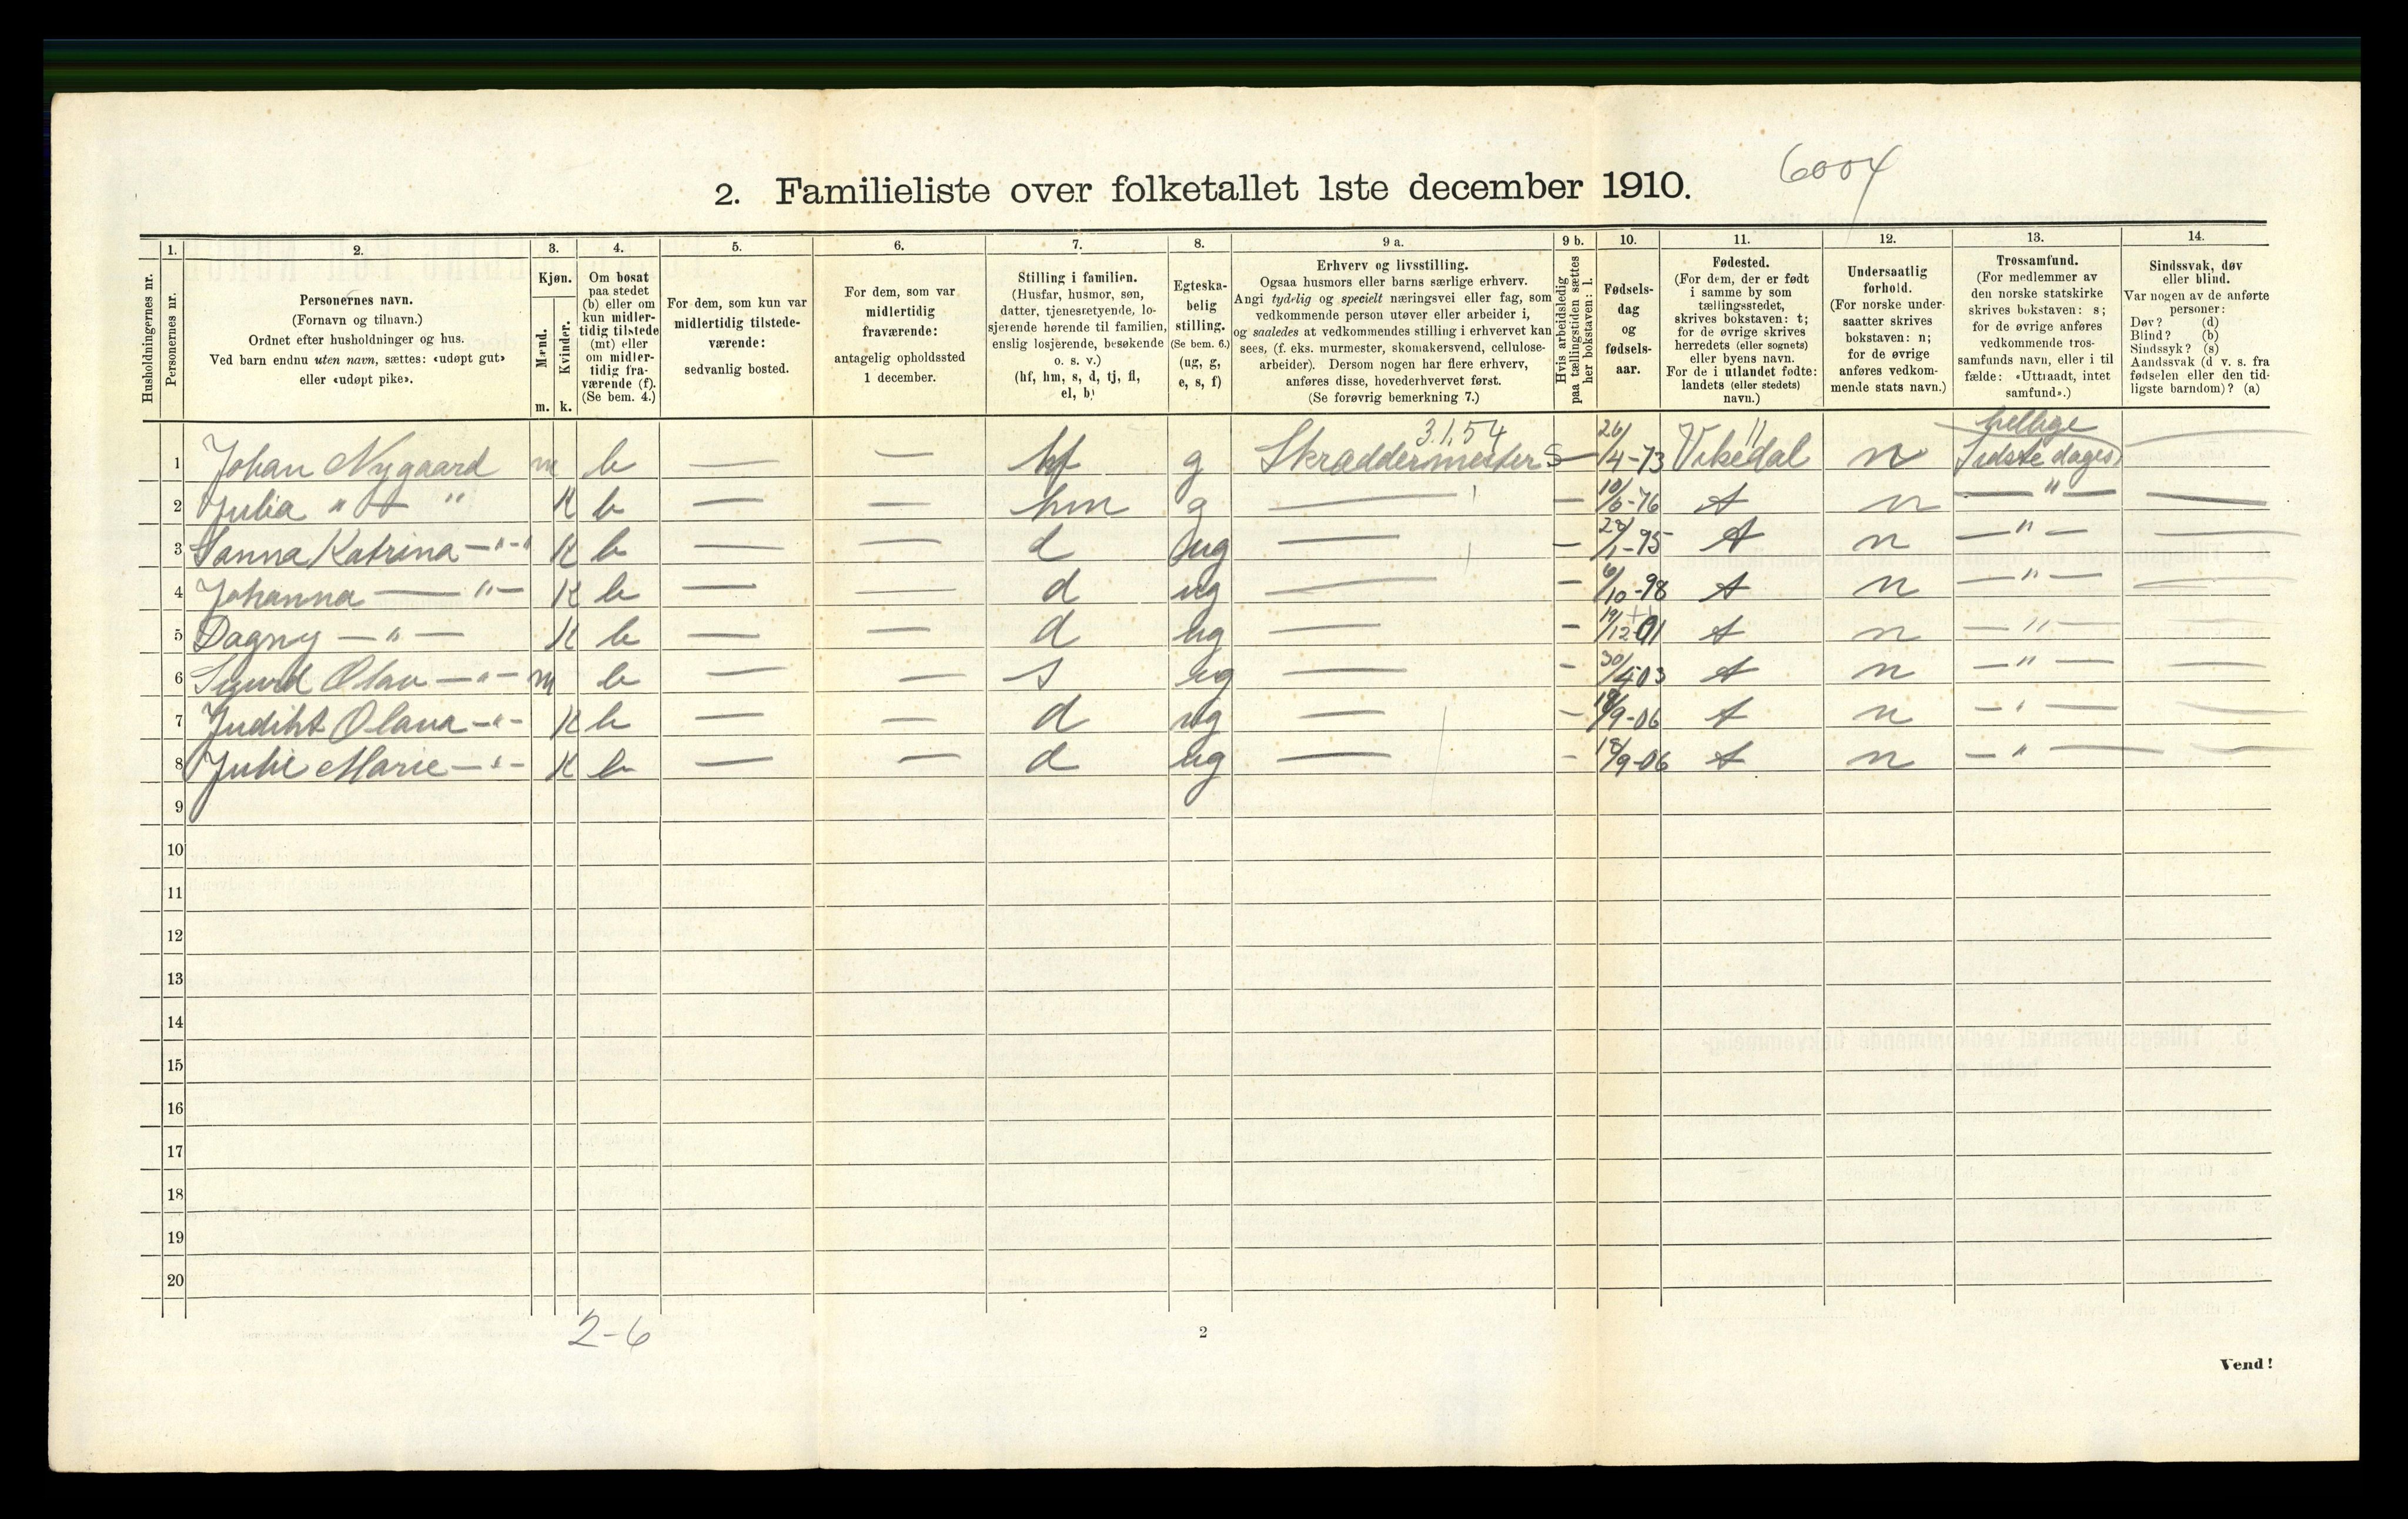 6004
2. Familieliste over folketallet 1ste december 1910.
Husholdningernes nr.
1.
Personernes nr.
2.
Personernes navn.
(Fornavn og tilnavn.)
Ordnet efter husholdninger og hus.
Ved barn endnu uten navn, sættes: «udøpt gut»
eller «udøpt pike».
3.
Kjøn.
Mænd.
Kvinder.
m. k.
4.
Om bosat
paa stedet
(b) eller om
kun midler-
tidig tilstede
(mt) eller
om midler-
tidig fra-
værende (f).
(Se bem. 4.)
5.
For dem, som kun var
midlertidig tilstede-
værende:
sedvanlig bosted.
6.
For dem, som var
midlertidig
fraværende:
antagelig opholdssted
1 december.
7.
Stilling i familien.
(Husfar, husmor, søn,
datter, tjenestetyende, lo-
sjerende hørende til familien,
enslig losjerende, besøkende
o. s. v.)
(hf, hm, s, d, tj, fl,
el, b)
8.
Egteska-
belig
stilling.
(Se bem. 6.)
(ug, g,
e, s, f)
9 a.
Erhverv og livsstilling.
Ogsaa husmors eller barns særlige erhverv.
Angi tydelig og specielt næringsvei eller fag, som
vedkommende person utøver eller arbeider i,
og saaledes at vedkommendes stilling i erhvervet kan
sees, (f. eks. murmester, skomakersvend, cellulose-
arbeider). Dersom nogen har flere erhverv,
anføres disse, hovederhvervet først.
(Se forøvrig bemerkning 7.)
9 b.
Hvis arbeidsledig
paa tællingstiden sættes
her bokstaven: l.
10.
Fødsels-
dag
og
fødsels-
aar.
11.
Fødested.
(For dem, der er født
i samme by som
tællingsstedet,
skrives bokstaven: t;
for de øvrige skrives
herredets (eller sognets)
eller byens navn.
For de i utlandet fødte:
landets (eller stedets)
navn.)
12.
Undersaatlig
forhold.
(For norske under-
saatter skrives
bokstaven: n;
for de øvrige
anføres vedkom-
mende stats navn.)
13.
Trossamfund.
(For medlemmer av
den norske statskirke
skrives bokstaven: s;
for de øvrige anføres
vedkommende tros-
samfunds navn, eller i til
fælde: «Uttraadt, intet
samfund».)
14.
Sindssvak, døv
eller blind.
Var nogen av de anførte
personer:
Døv? (d)
Blind? (b)
Sindssyk? (s)
Aandssvak (d v. s. fra
fødselen eller den tid-
ligste barndom)? (a)
3.1.54 11 hellige
1 Johan Nygaard m b — — hf g Skræddermester S — 26/4-73 Vikedal n Sidste dages —
2 Julia " — " K b — — hm g — — 10/6-76 t n — " — —
3 Sanna Katrina — " — " K b — — d ug — — 23/1-95 t n — " — —
4 Johanna — " — K b — — d ug — — 6/10-98 t n — " — —
5 Dagny — " — K b — — d ug — — 19/12-01 t n — " — —
6 Sigurd Olav — " — m b — — s ug — — 30/4 03 t n — " — —
7 Judiht Olava — " — K b — — d ug — — 18/9-06 t n — " — —
8 Julie Marie — " — K b — — d ug — — 18/9-06 t n — " — —
9
10
11
12
13
14
15
16
17
18
19
20
2-6
2
Vend!